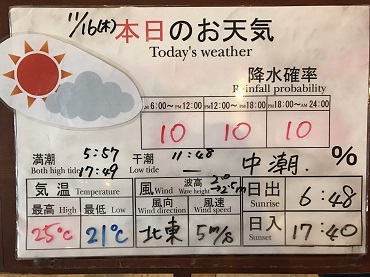 11/16(木) 本日のお天気
Today's weather
降水確率
Rainfall probability
AM 6:00~PM 12:00 PM 12:00~PM 18:00 PM 18:00~AM 24:00
10 10 10
満潮 5:57 干潮 11:48 中潮. %
Both high tide 17:49 Low tide
気温 Temperature 風 Wind 波高 Wave height 2.0→2.5m 日出 Sunrise 6:48
最高 High 最低 Low 風向 Wind direction 風速 Wind speed
25℃ 21℃ 北東 5m/s 日入 Sunset 17:40